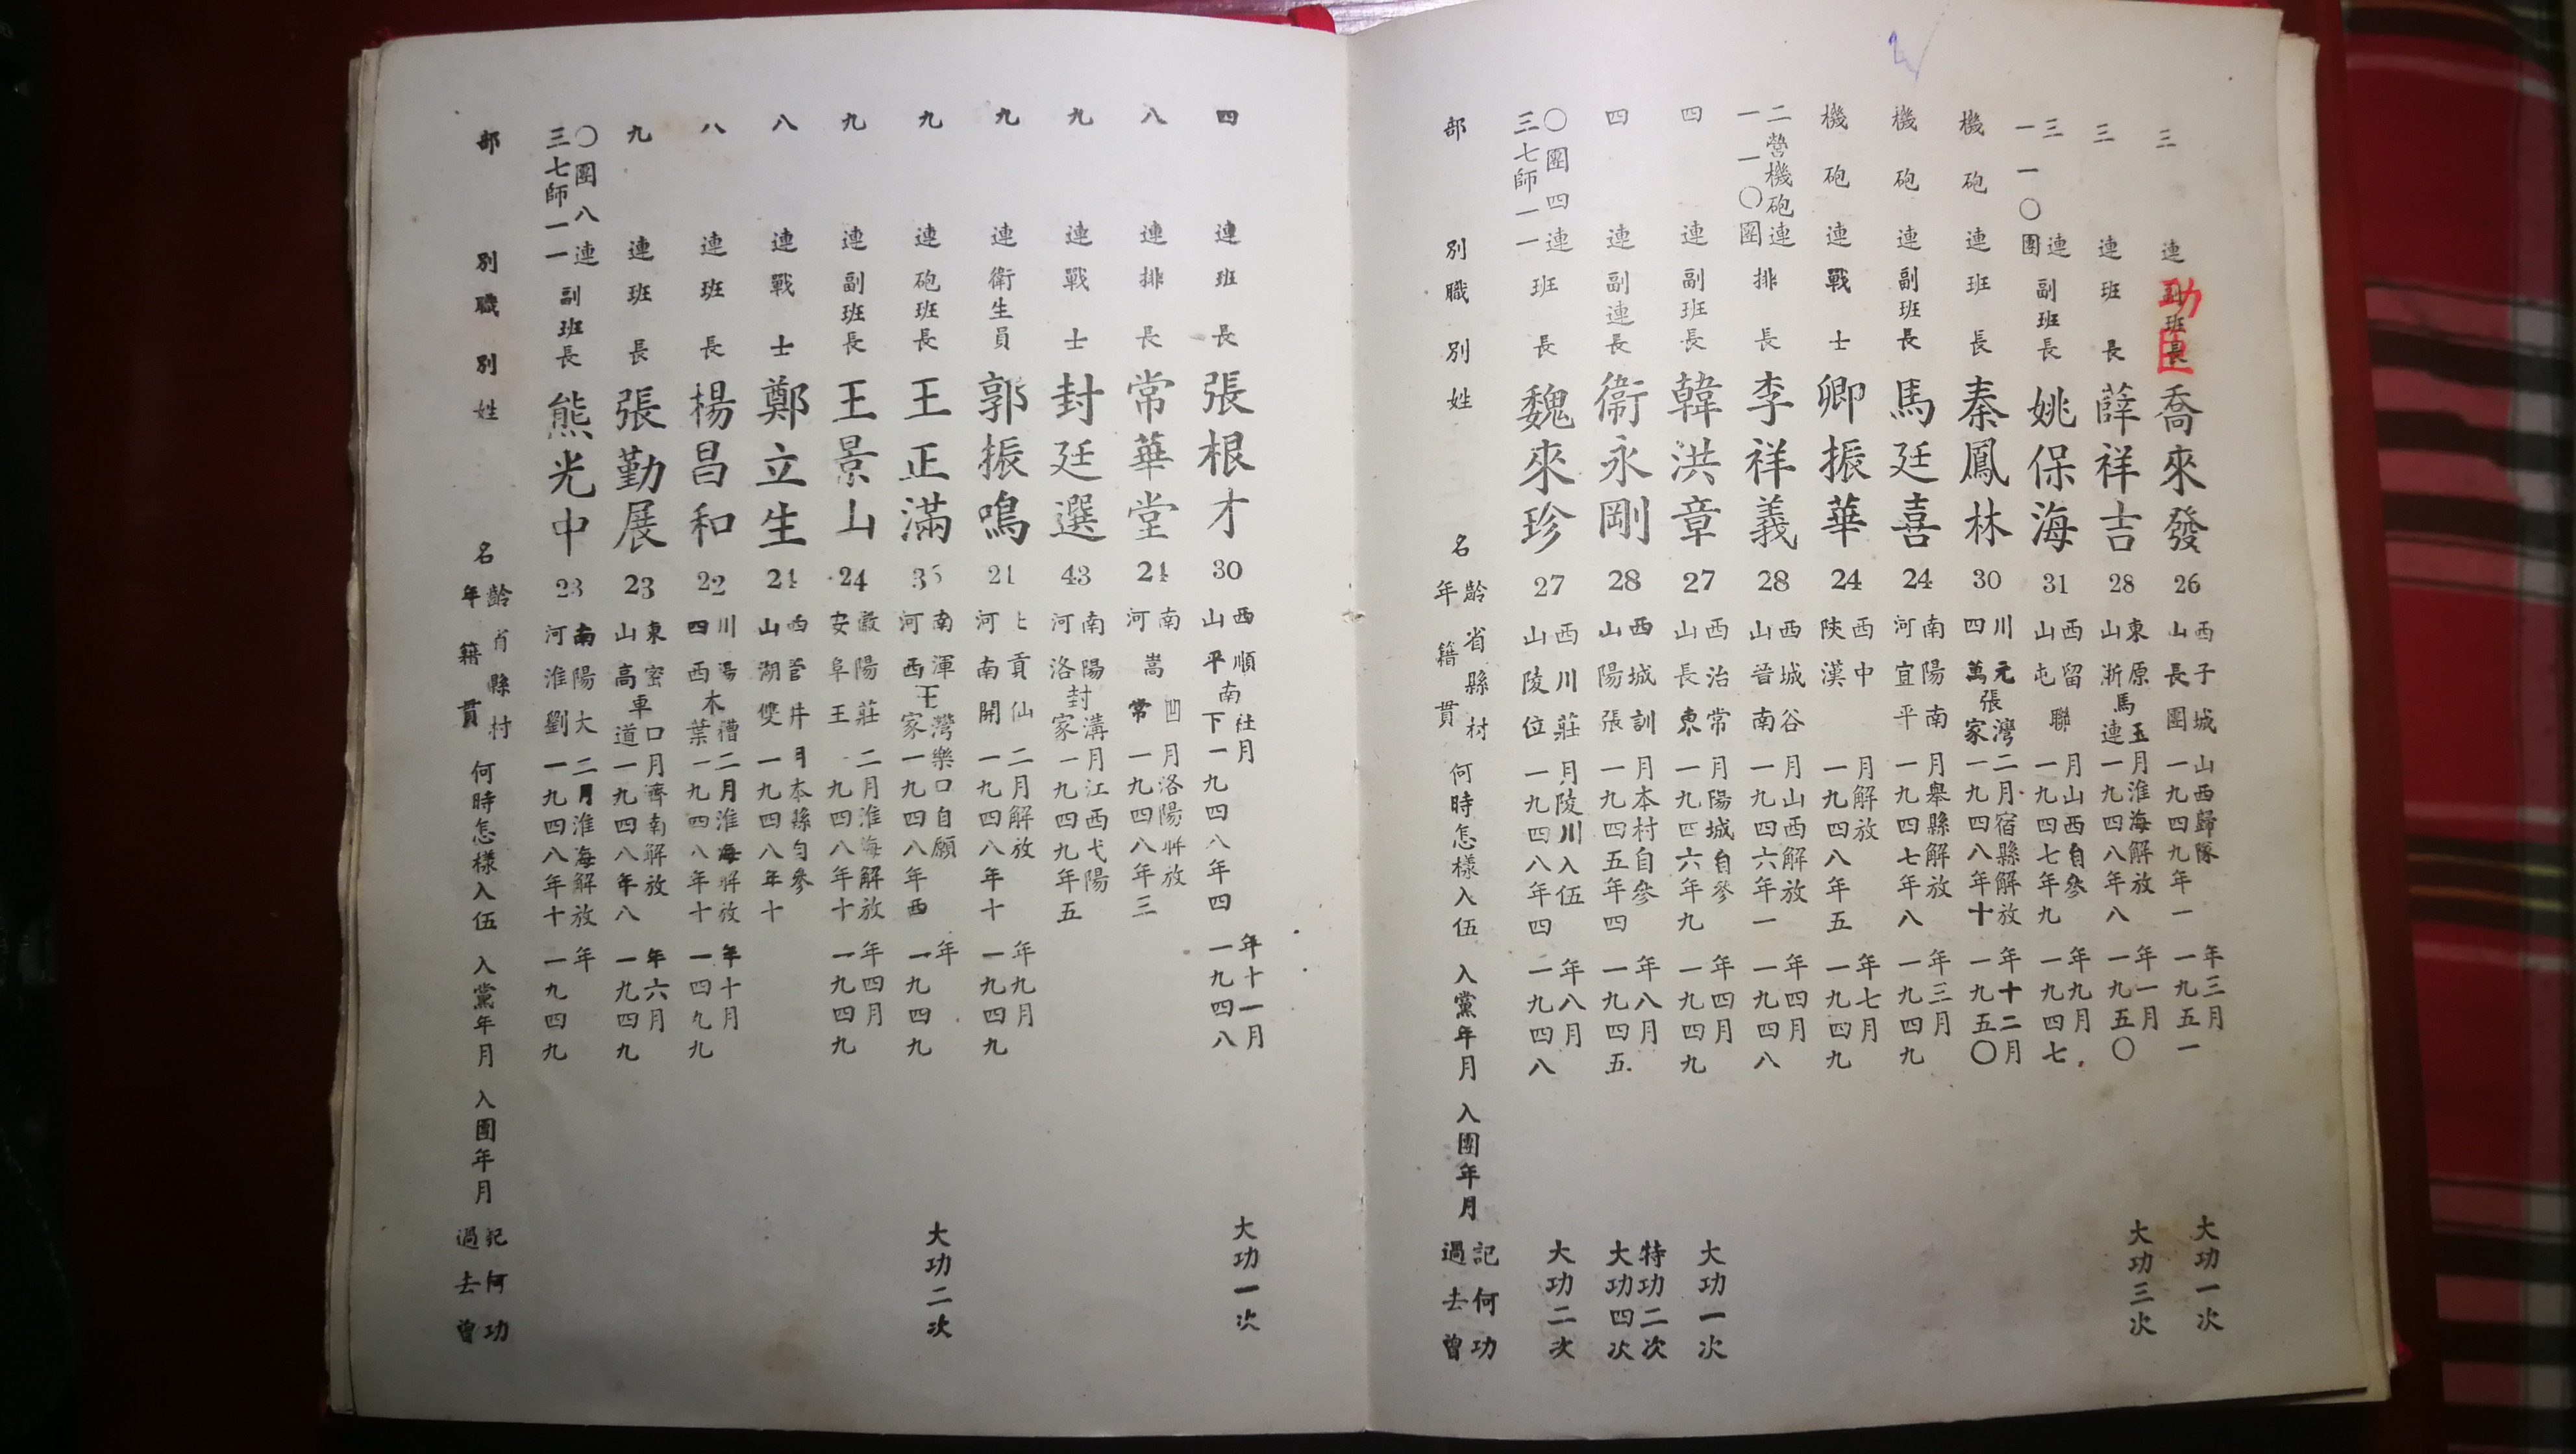 部別 職別 姓名 年齡 籍貫 省縣村 何時怎樣入伍 入黨年月 入團年月 過去曾記何功
三七師一一〇團八連 副班長 熊光中 23 河南淮陽劉大 一九四八年十二月淮海解放 一九四九年
九連 班長 張勤展 23 山東高密車道口 一九四八年八月濟南解放 一九四九年六月
八連 班長 楊昌和 22 四川西陽木葉槽 一九四八年十二月淮海解放 一四九九年十月
八連 戰士 鄭立生 21 山西湖管雙井 一九四八年十月本縣自參
九連 副班長 王景山 24 安徽阜陽王莊 一九四八年十二月淮海解放 一九四九年四月
九連 砲班長 王正滿 35 河南西渾王家灣 一九四八年西樂口自願 一九四九年 大功二次
九連 衛生員 郭振鳴 21 河南貢開仙 一九四八年十二月解放 一九四九年九月
九連 戰士 封廷選 43 河南洛陽封家溝 一九四九年五月江西弋陽
八連 排長 常華堂 21 河南嵩常凹 一九四八年三月洛陽解放
四連 班長 張根才 30 山西平順南下社 一九四八年四月 一九四八年十一月 大功一次
部別 職別 姓名 年齡 籍貫 省縣村 何時怎樣入伍 入黨年月 入團年月 過去曾記何功
三七師一一〇團四連 班長 魏來珍 27 山西陵川位莊 一九四八年四月陵川入伍 一九四八年八月 大功二次
四連 副連長 衞永剛 28 山西陽城張訓 一九四五年四月本村自參 一九四五年八月 大功四次特功二次
四連 副班長 韓洪章 27 山西長治東常 一九四六年九月陽城自參 一九四九年四月 大功一次
一一〇團二營機砲連 排長 李祥義 28 山西晉城南谷 一九四六年一月山西解放 一九四八年四月
機砲連 戰士 卿振華 24 陝西漢中 一九四八年五月解放 一九四九年七月
機砲連 副班長 馬廷喜 24 河南宜陽平南 一九四七年八月舉縣解放 一九四九年三月
機砲連 班長 秦鳳林 30 四川萬元張家灣 一九四八年十二月宿縣解放 一九五〇年十二月
一一〇團三連 副班長 姚保海 31 山西屯留聯 一九四七年九月山西自參 一九四七年九月
三連 班長 薛祥吉 28 山東浙原馬連玉 一九四八年八月淮海解放 一九五〇年一月 大功三次
三連 副班長 喬來發 26 山西長子團城 一九四九年一山西歸隊 一九五一年三月 大功一次
功臣